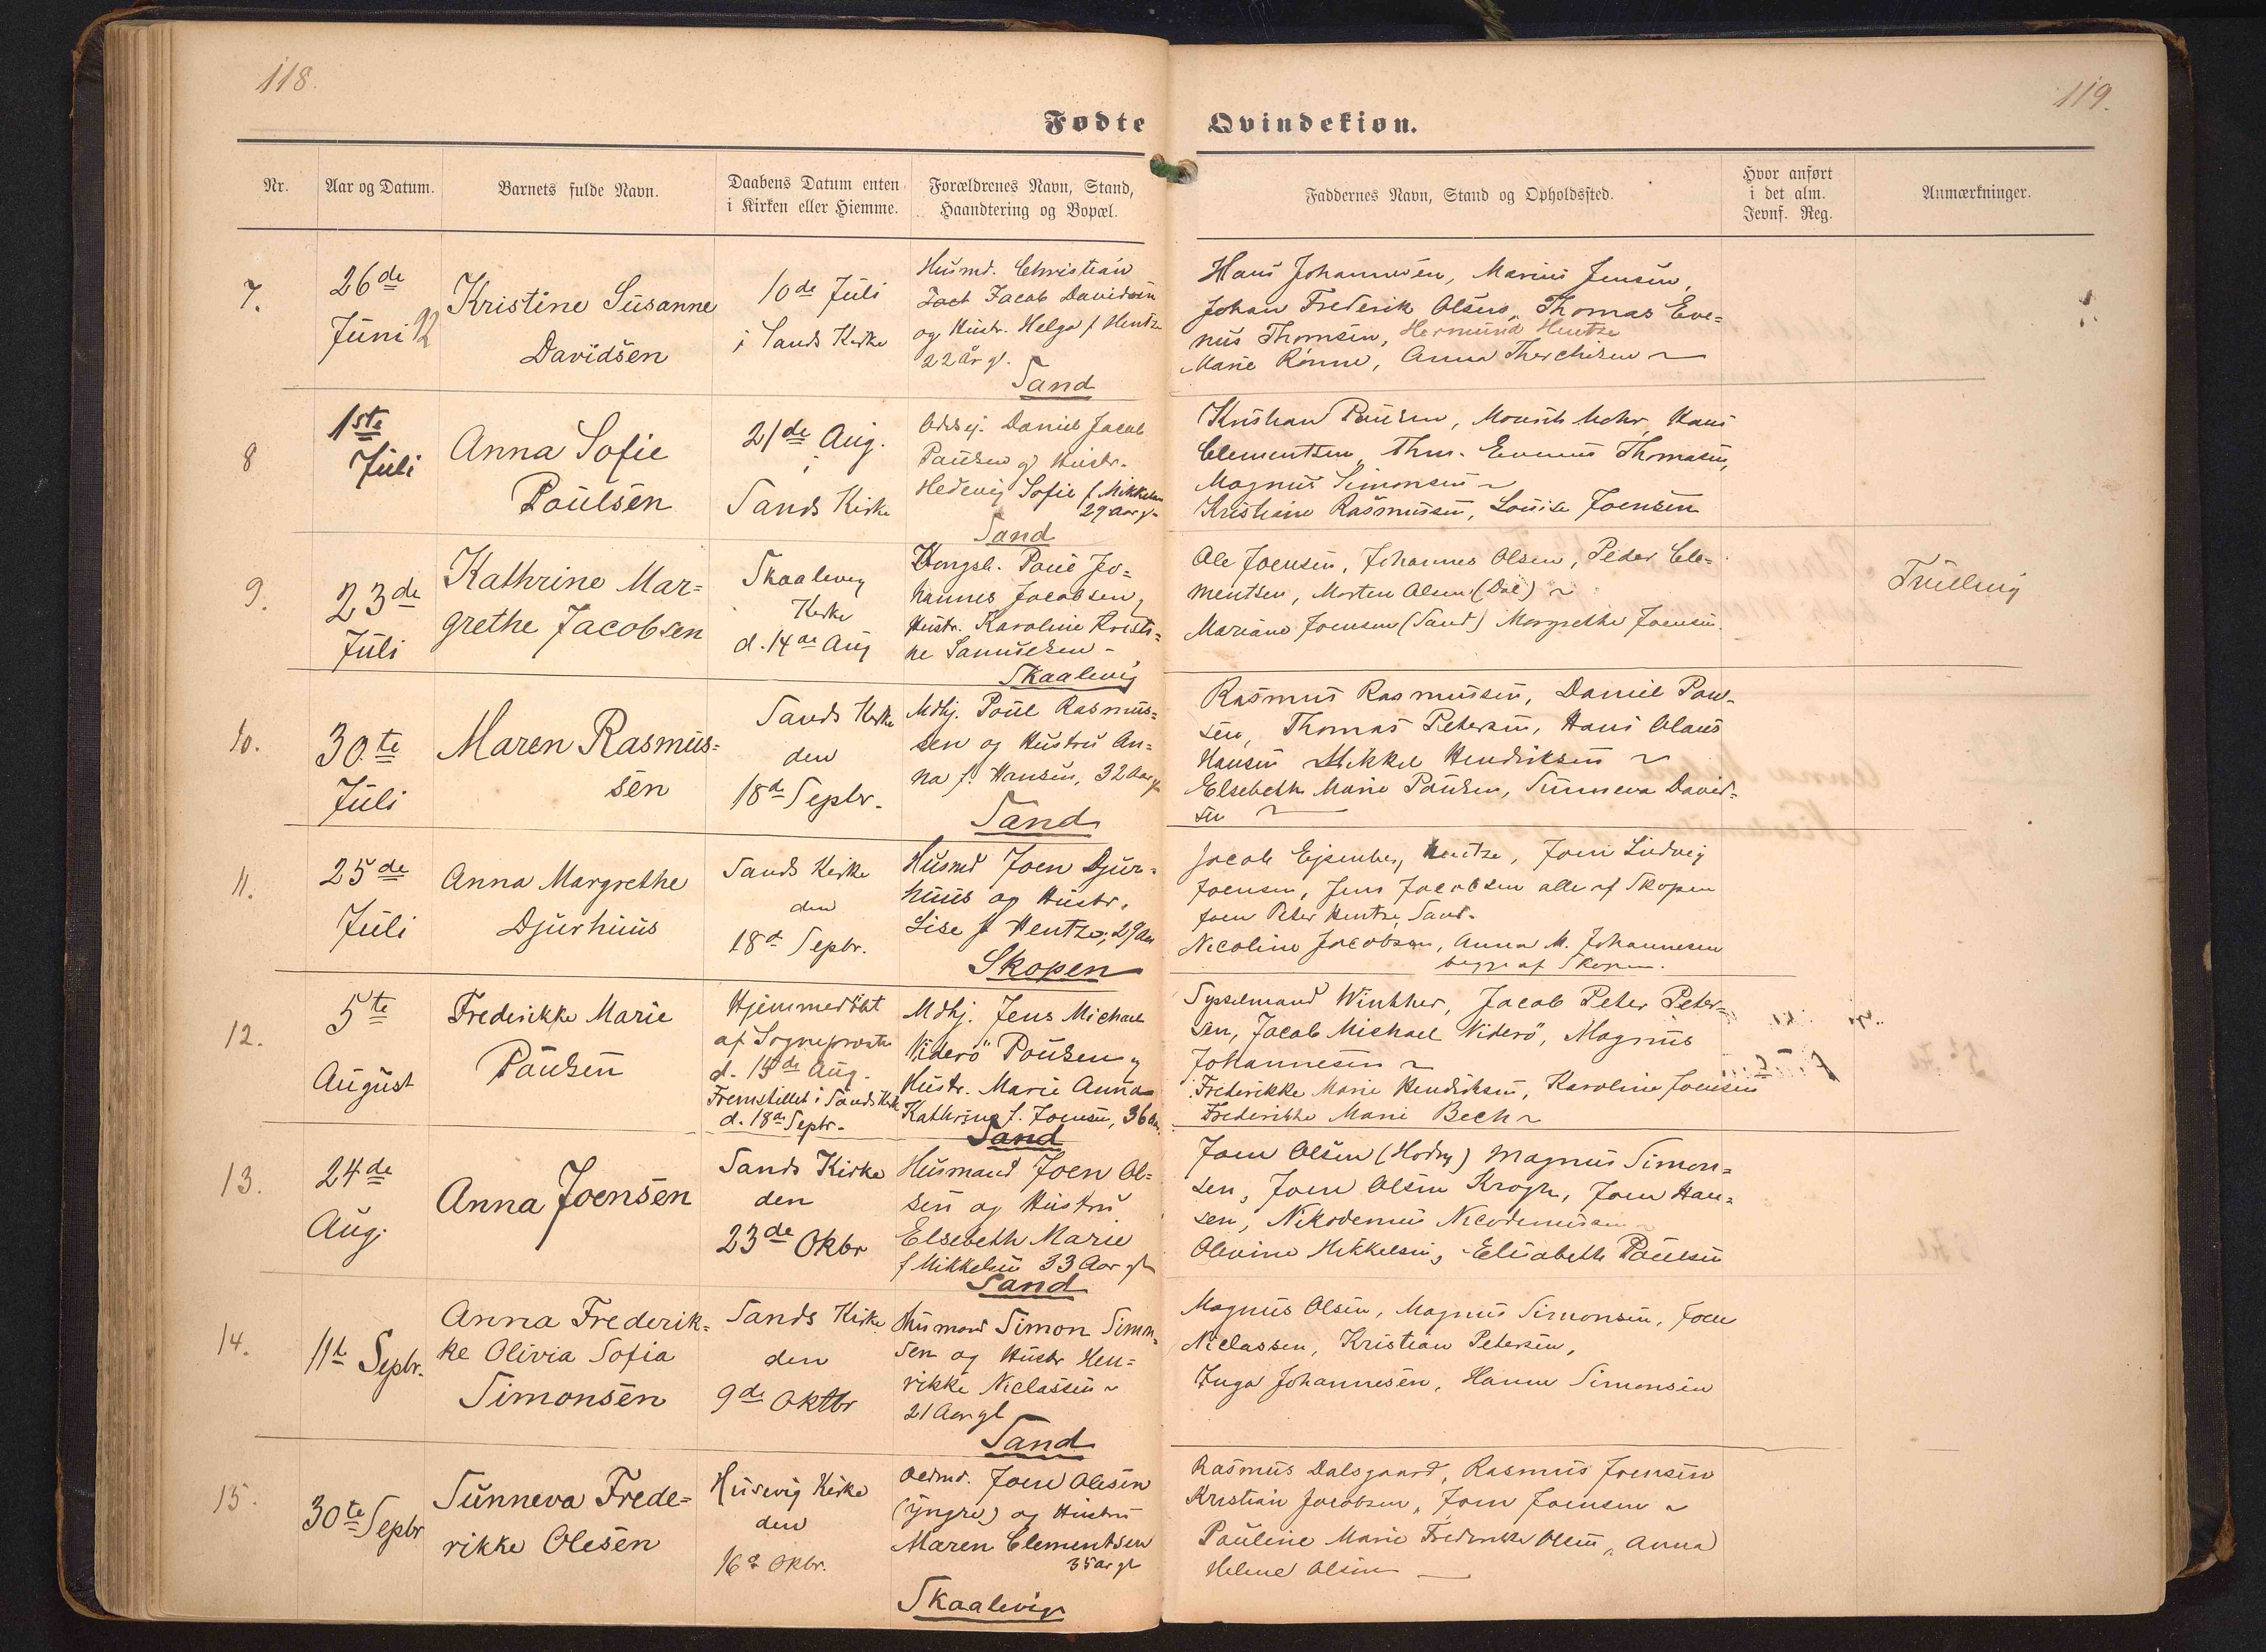 118.
119.
Fødte Qvindekiøn.
Nr.
Aar og Datum.
Barnets fulde Navn.
Daabens Datum enten
i Kirken eller Hiemme.
Forældrenes Navn, Stand,
Haandtering og Bopæl.
Faddernes Navn, Stand og Opholdssted.
Hvor anført
i det alm.
Jevnf. Reg.
Anmærkninger.
7.
26de
Juni 92
Kristine Susanne
Davidsen
10de Juli
i Sands Kirke
Husmd. Christian
Zach Jacob Davidsen
og Hustr. Helga f Hentze
22 år gl.
Sand
Hans Johannesen, Marius Jensen,
Johan Frederik Olsen, Thomas Eve=
nus Thomsen, Hermund Hentze
Marie Rønne, Anna Therchilsen
8
1ste
Juli
Anna Sofie
Poulsen
21de Aug.
i
Sands Kirke
Odsej. Daniel Jacob
Poulsen og Hustr.
Hedevig Sofie f. Mikkelsen
29 Aar gl
Sand
Kristian Poulsen, Mourits Mohr, Hans
Clementsen, Thm. Evenus Thomsen,
Magnus Simonsen
Kristiane Rasmussen, Louise Joensen
9.
23de
Juli
Kathrine Mar=
grethe Jacobsen
Skaalevig
Kirke
d. 14de Aug
Kongsb. Poul Jo=
hannes Jacobsen,
Hustr. Karoline Kristi=
ne Samuelsen
Skaalevig
Ole Joensen, Johannes Olsen, Peder Cle=
mentsen, Morten Olsen (Dal)
Mariane Joensen (Sand) Margrethe Joensen.
Tvilling
10.
30.te
Juli
Maren Rasmus=
sen
Sands Kirke
den
18de Septbr.
Mdhj. Poul Rasmus=
sen og Hustru An=
na f. Hansen, 32 Aar gl
Sand
Rasmus Rasmussen, Daniel Poul-
sen, Thomas Petersen, Hans Olaus
Hansen Mikkel Hendriksen
Elsebeth Marie Poulsen, Sunneva David=
sen
11.
25de
Juli
Anna Margrethe
Djurhuus
Sands Kirke
den
18de Septbr.
Husmd Joen Djur=
huus og Hustr.
Lise f Hentze, 29 Aar
Skopen
Jacob Ejsenberg Hentze, Joen Ludvig
Joensen, Jens Jacobsen alle af Skopen
Joen Peter Hentze, Sand.
Nicoline Jacobsen, Anna M. Johannesen
begge af Skopen.
12.
5te
August
Frederikke Marie
Poulsen
Hjemmedöbt
af Sognepræsten
d. 15de Aug.
Fremstillet i Sands Kirke
d. 18de Septbr.
Mdhj. Jens Michael
Viderö Poulsen og
Hustr. Marie Anna
Kathrine f. Joensen, 36 Aar.
Sand
Sysselmand Winther, Jacob Peter Peter=
sen, Jacob Michael Viderö, Magnus
Johannesen
Frederikke Marie Hendriksen, Karoline Joensen
Frederikke Marie Bech
13.
24de
Aug.
Anna Joensen
Sands Kirke
den
23de Oktbr
Husmand Joen Ol=
sen og Hustru
Elsebeth Marie
f Mikkelsen 33 Aar gl
Sand
Joen Olsen Magnus Simon=
sen, Joen Olsen Krogh, Joen Han=
sen, Nikodemus Nicodemusen
Olevine Mikkelsen, Elisabeth Poulsen
14.
11te Septbr.
Anna Frederik=
ke Olivia Sofia
Simonsen
Sands Kirke
den
9de Oktbr
Husmand Simon Simon=
sen og Hustr Hen=
rikke Niclassen
21 Aar gl
Sand
Magnus Olsen, Magnus Simonsen, Joen
Niclassen, Kristian Petersen,
Inga Johannesen, Hanne Simonsen
15.
30te Septbr
Sunneva Frede=
rikke Olesen
Husevig Kirke
den
16de Oktbr.
Joen Olesen
(yngre) og Hustru
Maren Clementsen
35 ar gl
Skaalevig
Rasmus Dalsgaard, Rasmus Joensen
Kristian Jacobsen, Joen Joensen
Pauline Marie Frederikke Olsen, Anna
Helene Olsen